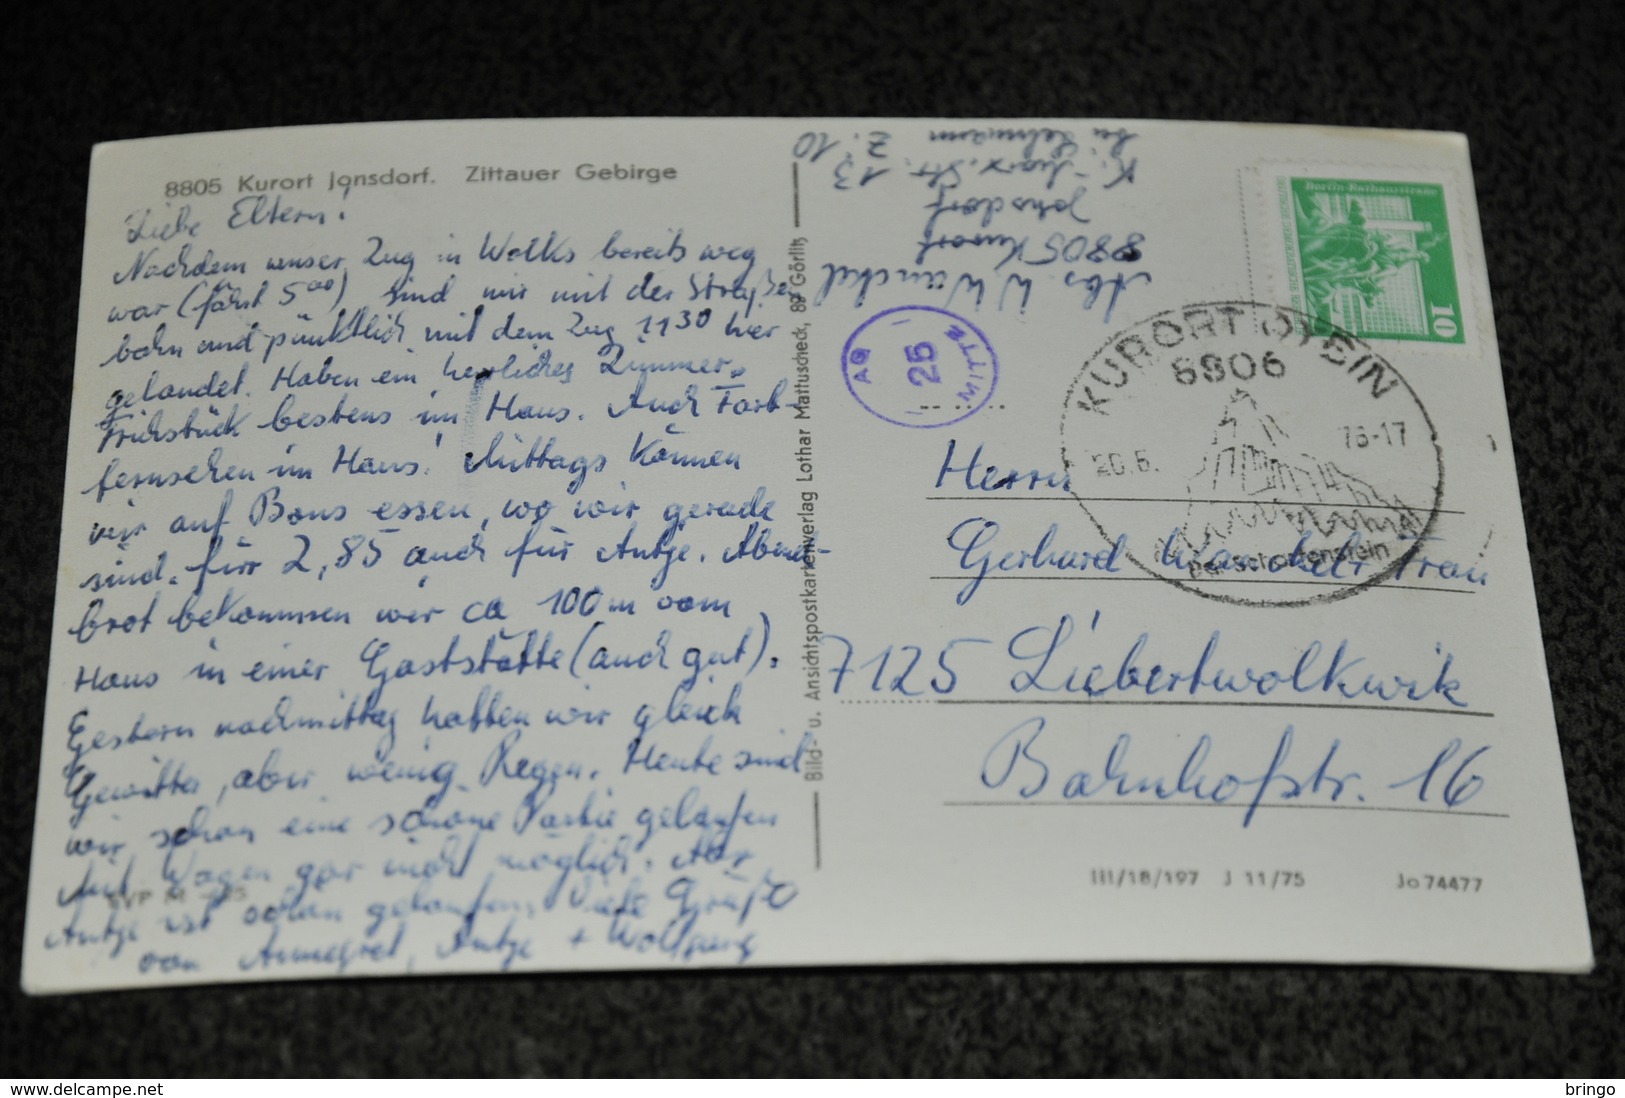 8805 Kurort Jonsdorf. Zittauer Gebirge
Liebe Eltern!
Nachdem unser Zug in Wolks bereits weg
war (fährt 5⁰⁰) sind wir mit der Straßen
bahn und pünktlich mit dem Zug 11³⁰ hier
gelandet. Haben ein herrliches Zimmer.
Frühstück bestens im Haus. Auch Farb-
fernsehen im Haus! Mittags können
wir auf Bons essen, wo wir gerade
sind. für 2,85 auch für Antje. Abend-
brot bekommen wir ca 100 m vom
Haus in einer Gaststätte (auch gut).
Gestern nachmittag hatten wir gleich
Gewitter, aber wenig Regen. Heute sind
wir schon eine schöne Partie gelaufen
Mit Wagen gar nicht möglich. Aber
Antje ist schon gelaufen. Viele Grüße
von Annegret, Antje + Wolfgang
Bild- u. Ansichtspostkartenverlag Lothar Mattuscheck, 89 Görlitz
Abs. W.
8805 Kurort
Jonsdorf
K.-Marx-Str. 13
bei Lehmann Z. 10
AG
25
MITTE
Berlin-Rathausstrasse
10
KURORT OYBIN
8806
20.6. 76-17
Herrn
Gerhard Frau
7125 Liebertwolkwitz
Bahnhofstr. 16
III/18/197 J 11/75 Jo 74477
www.delcampe.net
bringo